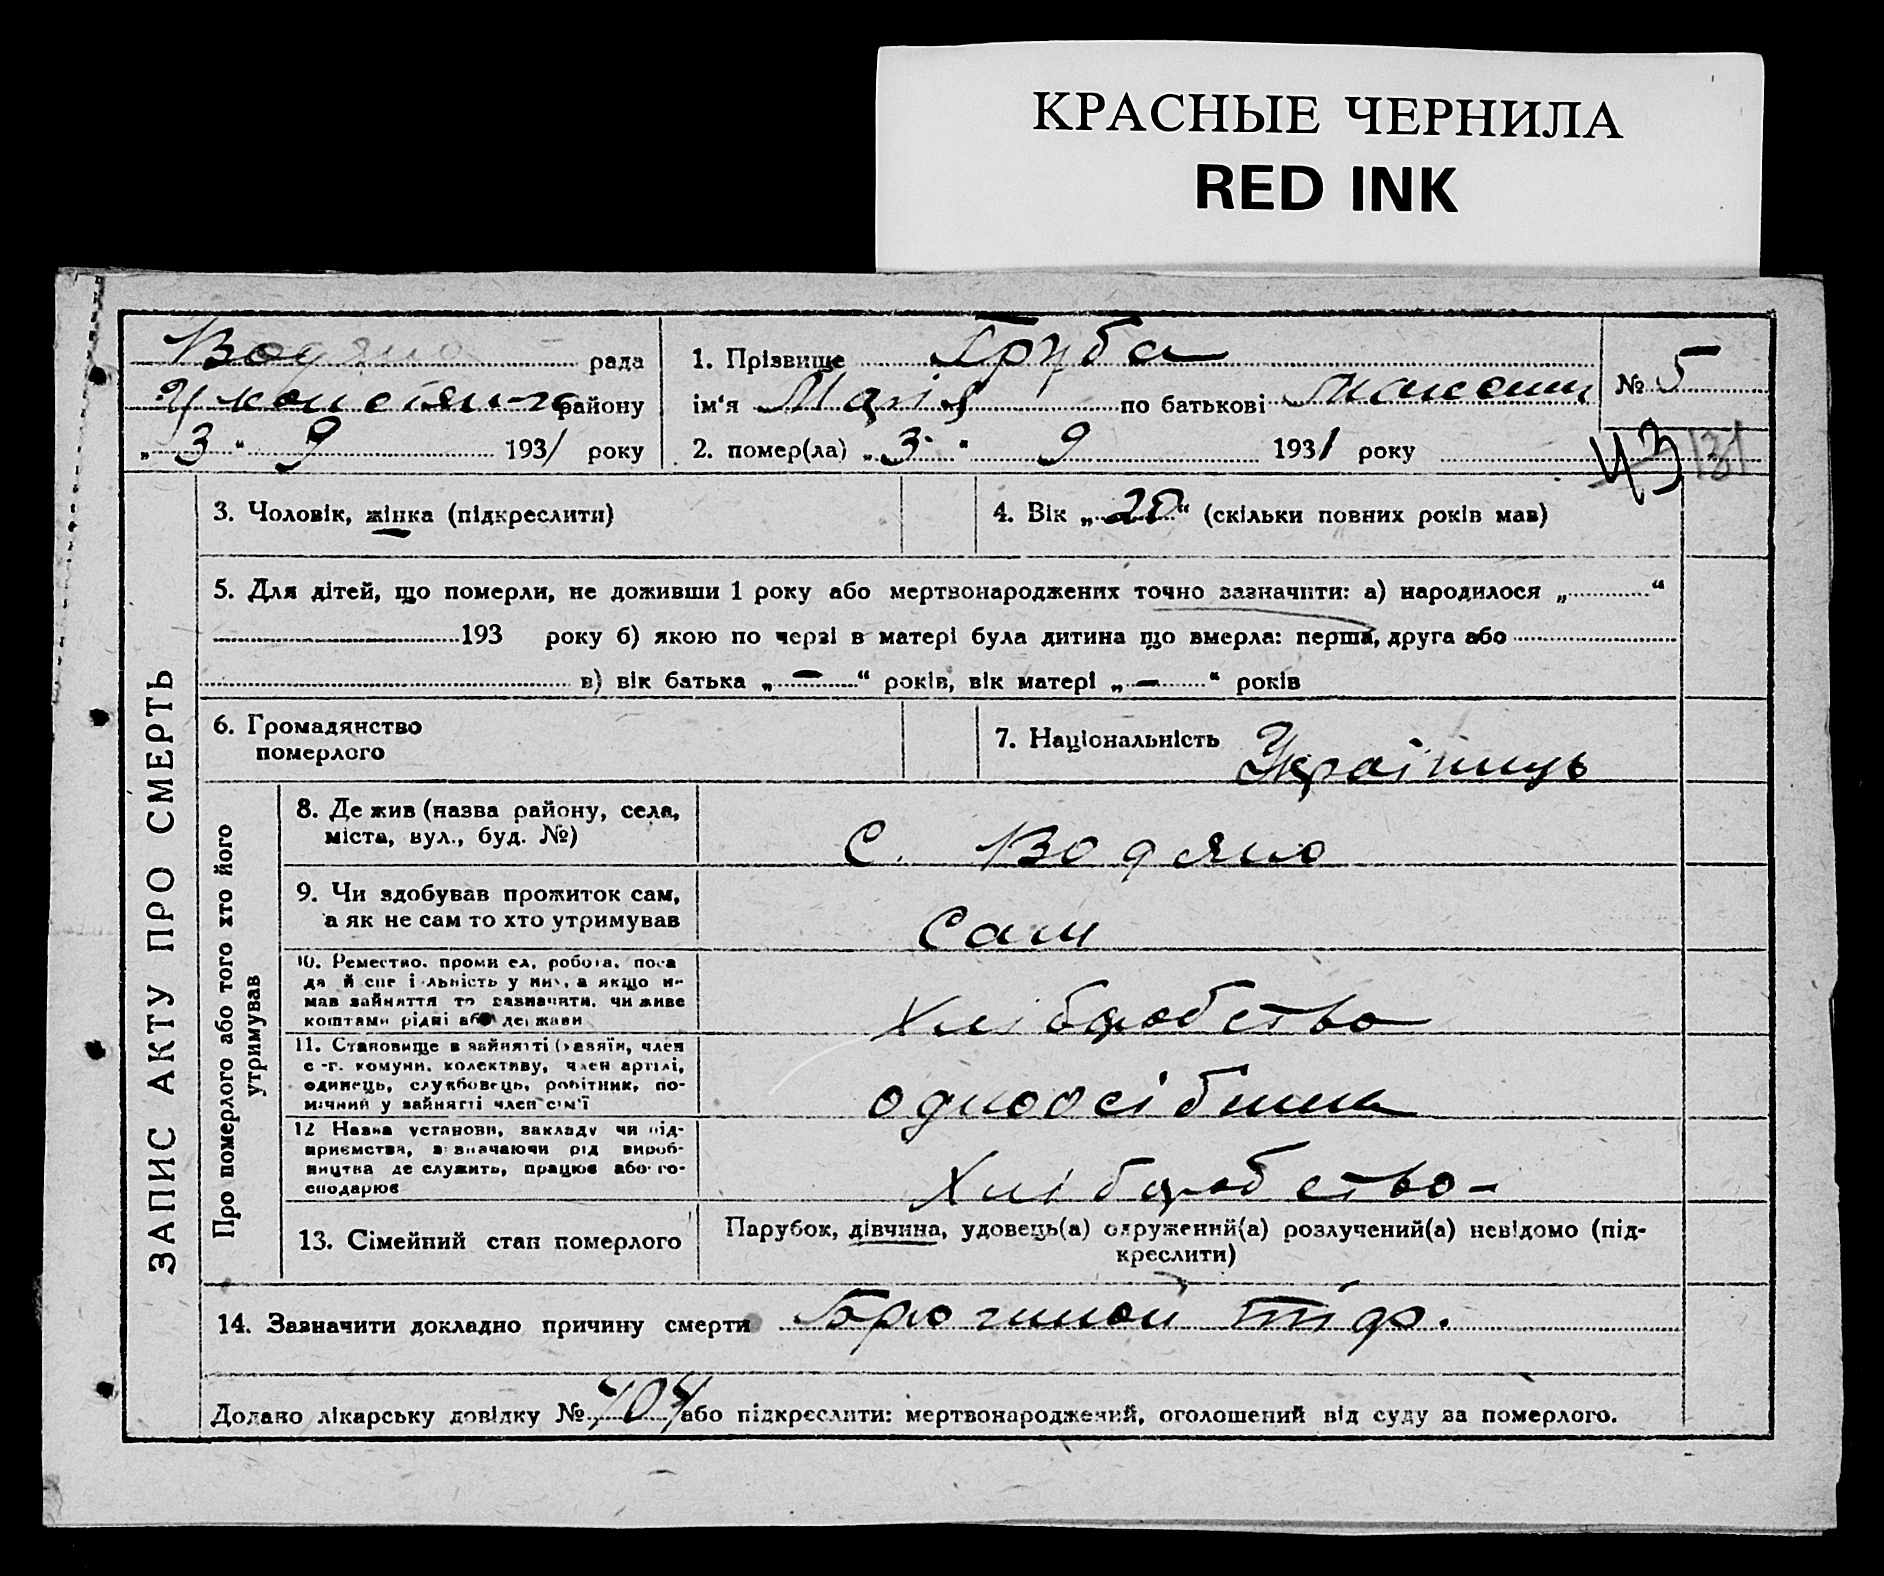 КРАСНЫЕ ЧЕРНИЛА
RED INK
Водяно рада
району
„ 3 “ 9 1931 року
1. Прізвище Груба
ім‘я Марія по батькові Максим
2. помер(ла) „ 3 “ 9 1931 року
№ 5
43 131
ЗАПИС АКТУ ПРО СМЕРТЬ
3. Чоловік, жінка (підкреслити)
4. Вік „ 20 “ (скільки повних років мав)
5. Для дітей, що померли, не доживши 1 року або мертвонароджених точно зазначити: а) народилося „ “
193 року б) якою по черзі в матері була дитина що вмерла: перша, друга або
в) вік батька „ – “ років, вік матері „ – “ років
6. Громадянство
померлого
7. Національність Українець
Про померлого або того хто його
утримував
8. Де жив (назва району, села,
міста, вул., буд. №)
с. Водяно
9. Чи здобував прожиток сам,
а як не сам то хто утримував
Сам
10. Ремество, проми ел, робота, поса
да й спе і льність у них, а якщо н-
мав зайняття то зазначити, чи живе
коштами рідні або держави
Хліборобство
11. Становище в зайнятті (хазяїн, член
с-г. комуни, колективу, член артілі,
одинець, службовець, робітник, по-
мічний у зайнятті член сім'ї
одноосібника
12 Назва установи, закладу чи під-
приємства, визначаючи рід вироб-
ництва де служить, працює або го-
сподарює
Хліборобство-
13. Сімейний стан померлого
Парубок, дівчина, удовець(а) одружений(а) розлучений(а) невідомо (під-
креслити)
14. Зазначити докладно причину смерти Брюшной тіф.
Додано лікарську довідку № 704 або підкреслити: мертвонароджений, оголошений від суду за померлого.